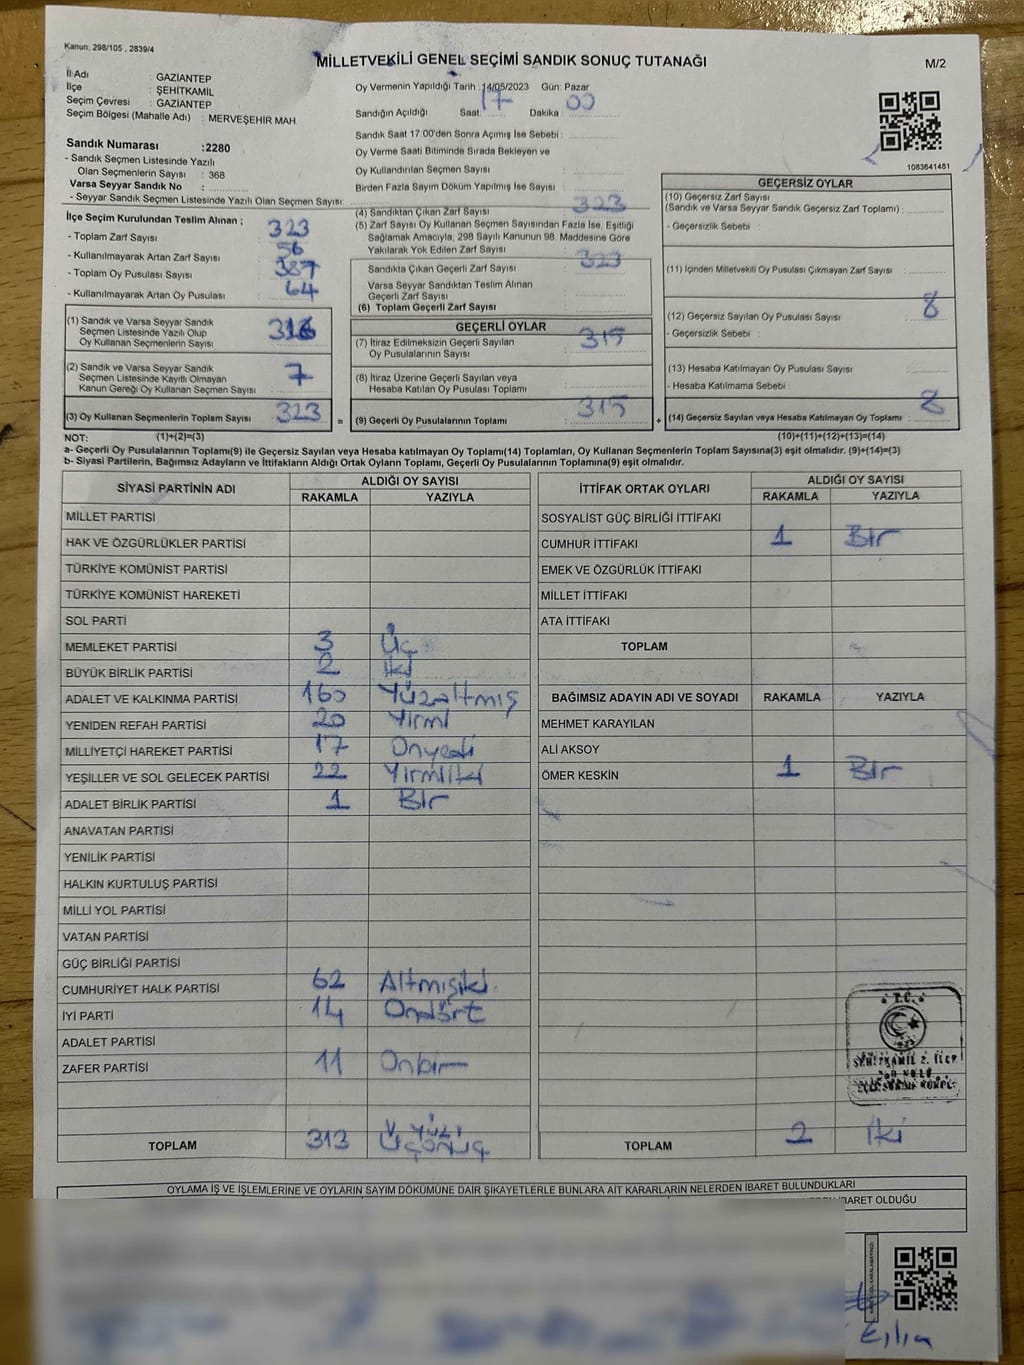 Kanun; 298/105 , 2839/4
MİLLETVEKİLİ GENEL SEÇİMİ SANDIK SONUÇ TUTANAĞI
M/2
İl Adı : GAZİANTEP
İlçe : ŞEHİTKAMİL
Seçim Çevresi : GAZİANTEP
Seçim Bölgesi (Mahalle Adı) : MERVEŞEHİR MAH
Oy Vermenin Yapıldığı Tarih :14/05/2023 Gün: Pazar
Sandığın Açıldığı Saat: 17 Dakika : 00
Sandık Saat 17:00'den Sonra Açımış İse Sebebi :
Oy Verme Saati Bitiminde Sırada Bekleyen ve
Oy Kullandırılan Seçmen Sayısı :
Birden Fazla Sayım Döküm Yapılmış İse Sayısı :
1083641451
Sandık Numarası :2280
- Sandık Seçmen Listesinde Yazılı
Olan Seçmenlerin Sayısı : 368
Varsa Seyyar Sandık No :
- Seyyar Sandık Seçmen Listesinde Yazılı Olan Seçmen Sayısı:
İlçe Seçim Kurulundan Teslim Alınan ;
- Toplam Zarf Sayısı : 323
- Kullanılmayarak Artan Zarf Sayısı : 56
- Toplam Oy Pusulası Sayısı : 387
- Kullanılmayarak Artan Oy Pusulası : 64
(1) Sandık ve Varsa Seyyar Sandık
Seçmen Listesinde Yazılı Olup
Oy Kullanan Seçmenlerin Sayısı : 316
(2) Sandık ve Varsa Seyyar Sandık
Seçmen Listesinde Kayıtlı Olmayan
Kanun Gereği Oy Kullanan Seçmen Sayısı : 7
(3) Oy Kullanan Seçmenlerin Toplam Sayısı : 323 =
(4) Sandıktan Çıkan Zarf Sayısı : 323
(5) Zarf Sayısı Oy Kullanan Seçmen Sayısından Fazla İse, Eşitliği
Sağlamak Amacıyla; 298 Sayılı Kanunun 98. Maddesine Göre
Yakılarak Yok Edilen Zarf Sayısı :
Sandıkta Çıkan Geçerli Zarf Sayısı : 323
Varsa Seyyar Sandıktan Teslim Alınan
Geçerli Zarf Sayısı :
(6) Toplam Geçerli Zarf Sayısı :
GEÇERLİ OYLAR
(7) İtiraz Edilmeksizin Geçerli Sayılan
Oy Pusulalarının Sayısı : 315
(8) İtiraz Üzerine Geçerli Sayılan veya
Hesaba Katılan Oy Pusulası Toplamı :
(9) Geçerli Oy Pusulalarının Toplamı : 315 +
GEÇERSİZ OYLAR
(10) Geçersiz Zarf Sayısı
(Sandık ve Varsa Seyyar Sandık Geçersiz Zarf Toplamı) :
- Geçersizlik Sebebi :
(11) İçinden Milletvekili Oy Pusulası Çıkmayan Zarf Sayısı :
(12) Geçersiz Sayılan Oy Pusulası Sayısı : 8
- Geçersizlik Sebebi :
(13) Hesaba Katılmayan Oy Pusulası Sayısı :
- Hesaba Katılmama Sebebi :
(14) Geçersiz Sayılan veya Hesaba Katılmayan Oy Toplamı : 8
NOT: (1)+(2)=(3) (10)+(11)+(12)+(13)=(14)
a- Geçerli Oy Pusulalarının Toplamı(9) ile Geçersiz Sayılan veya Hesaba Katılmayan oy Toplamı(14) Toplamları, Oy Kullanan Seçmenlerin Toplam Sayısına(3) eşit olmalıdır. (9)+(14)=(3)
b- Siyasi Partilerin, Bağımsız Adayların ve İttifakların Aldığı Ortak Oyların Toplamı, Geçerli Oy Pusulalarının Toplamına(9) eşit olmalıdır.
SİYASİ PARTİNİN ADI ALDIĞI OY SAYISI
RAKAMLA YAZIYLA
MİLLET PARTİSİ
HAK VE ÖZGÜRLÜKLER PARTİSİ
TÜRKİYE KOMÜNİST PARTİSİ
TÜRKİYE KOMÜNİST HAREKETİ
SOL PARTİ
MEMLEKET PARTİSİ 3 Üç
BÜYÜK BİRLİK PARTİSİ 2 İki
ADALET VE KALKINMA PARTİSİ 160 Yüzaltmış
YENİDEN REFAH PARTİSİ 20 Yirmi
MİLLİYETÇİ HAREKET PARTİSİ 17 Onyedi
YEŞİLLER VE SOL GELECEK PARTİSİ 22 Yirmiiki
ADALET BİRLİK PARTİSİ 1 Bir
ANAVATAN PARTİSİ
YENİLİK PARTİSİ
HALKIN KURTULUŞ PARTİSİ
MİLLİ YOL PARTİSİ
VATAN PARTİSİ
GÜÇ BİRLİĞİ PARTİSİ
CUMHURİYET HALK PARTİSİ 62 Altmışiki
İYİ PARTİ 14 Ondört
ADALET PARTİSİ
ZAFER PARTİSİ 11 Onbir
TOPLAM 313 Üçyüz Onüç
İTTİFAK ORTAK OYLARI ALDIĞI OY SAYISI
RAKAMLA YAZIYLA
SOSYALİST GÜÇ BİRLİĞİ İTTİFAKI
CUMHUR İTTİFAKI 1 Bir
EMEK VE ÖZGÜRLÜK İTTİFAKI
MİLLET İTTİFAKI
ATA İTTİFAKI
TOPLAM
BAĞIMSIZ ADAYIN ADI VE SOYADI RAKAMLA YAZIYLA
MEHMET KARAYILAN
ALİ AKSOY
ÖMER KESKİN 1 Bir
T.C.
ŞEHİTKAMİL 2. İLÇE
TOPLAM 2 İki
OYLAMA İŞ VE İŞLEMLERİNE VE OYLARIN SAYIM DÖKÜMÜNE DAİR ŞİKAYETLERLE BUNLARA AİT KARARLARIN NELERDEN İBARET BULUNDUKLARI
İBARET OLDUĞU